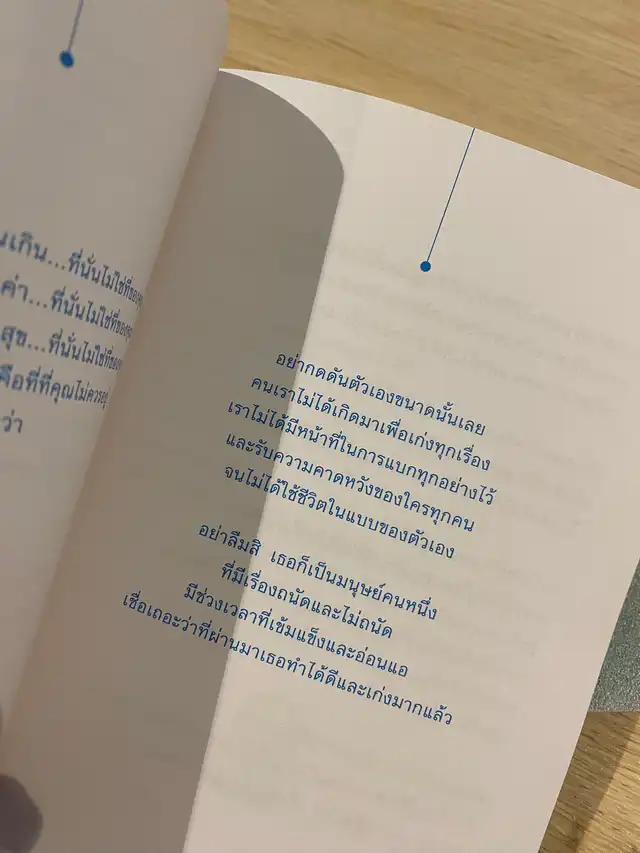 นเกิน...ที่นั่นไม่ใช่ที่ของคุณ
ค่า...ที่นั่นไม่ใช่ที่ของคุณ
สุข...ที่นั่นไม่ใช่ที่ของ
คือที่ที่คุณไม่ควรอยู่
ว่า
อย่ากดดันตัวเองขนาดนั้นเลย
คนเราไม่ได้เกิดมาเพื่อเก่งทุกเรื่อง
เราไม่ได้มีหน้าที่ในการแบกทุกอย่างไว้
และรับความคาดหวังของใครทุกคน
จนไม่ได้ใช้ชีวิตในแบบของตัวเอง
อย่าลืมสิ เธอก็เป็นมนุษย์คนหนึ่ง
ที่มีเรื่องถนัดและไม่ถนัด
มีช่วงเวลาที่เข้มแข็งและอ่อนแอ
เชื่อเถอะว่าที่ผ่านมาเธอทำได้ดีและเก่งมากแล้ว